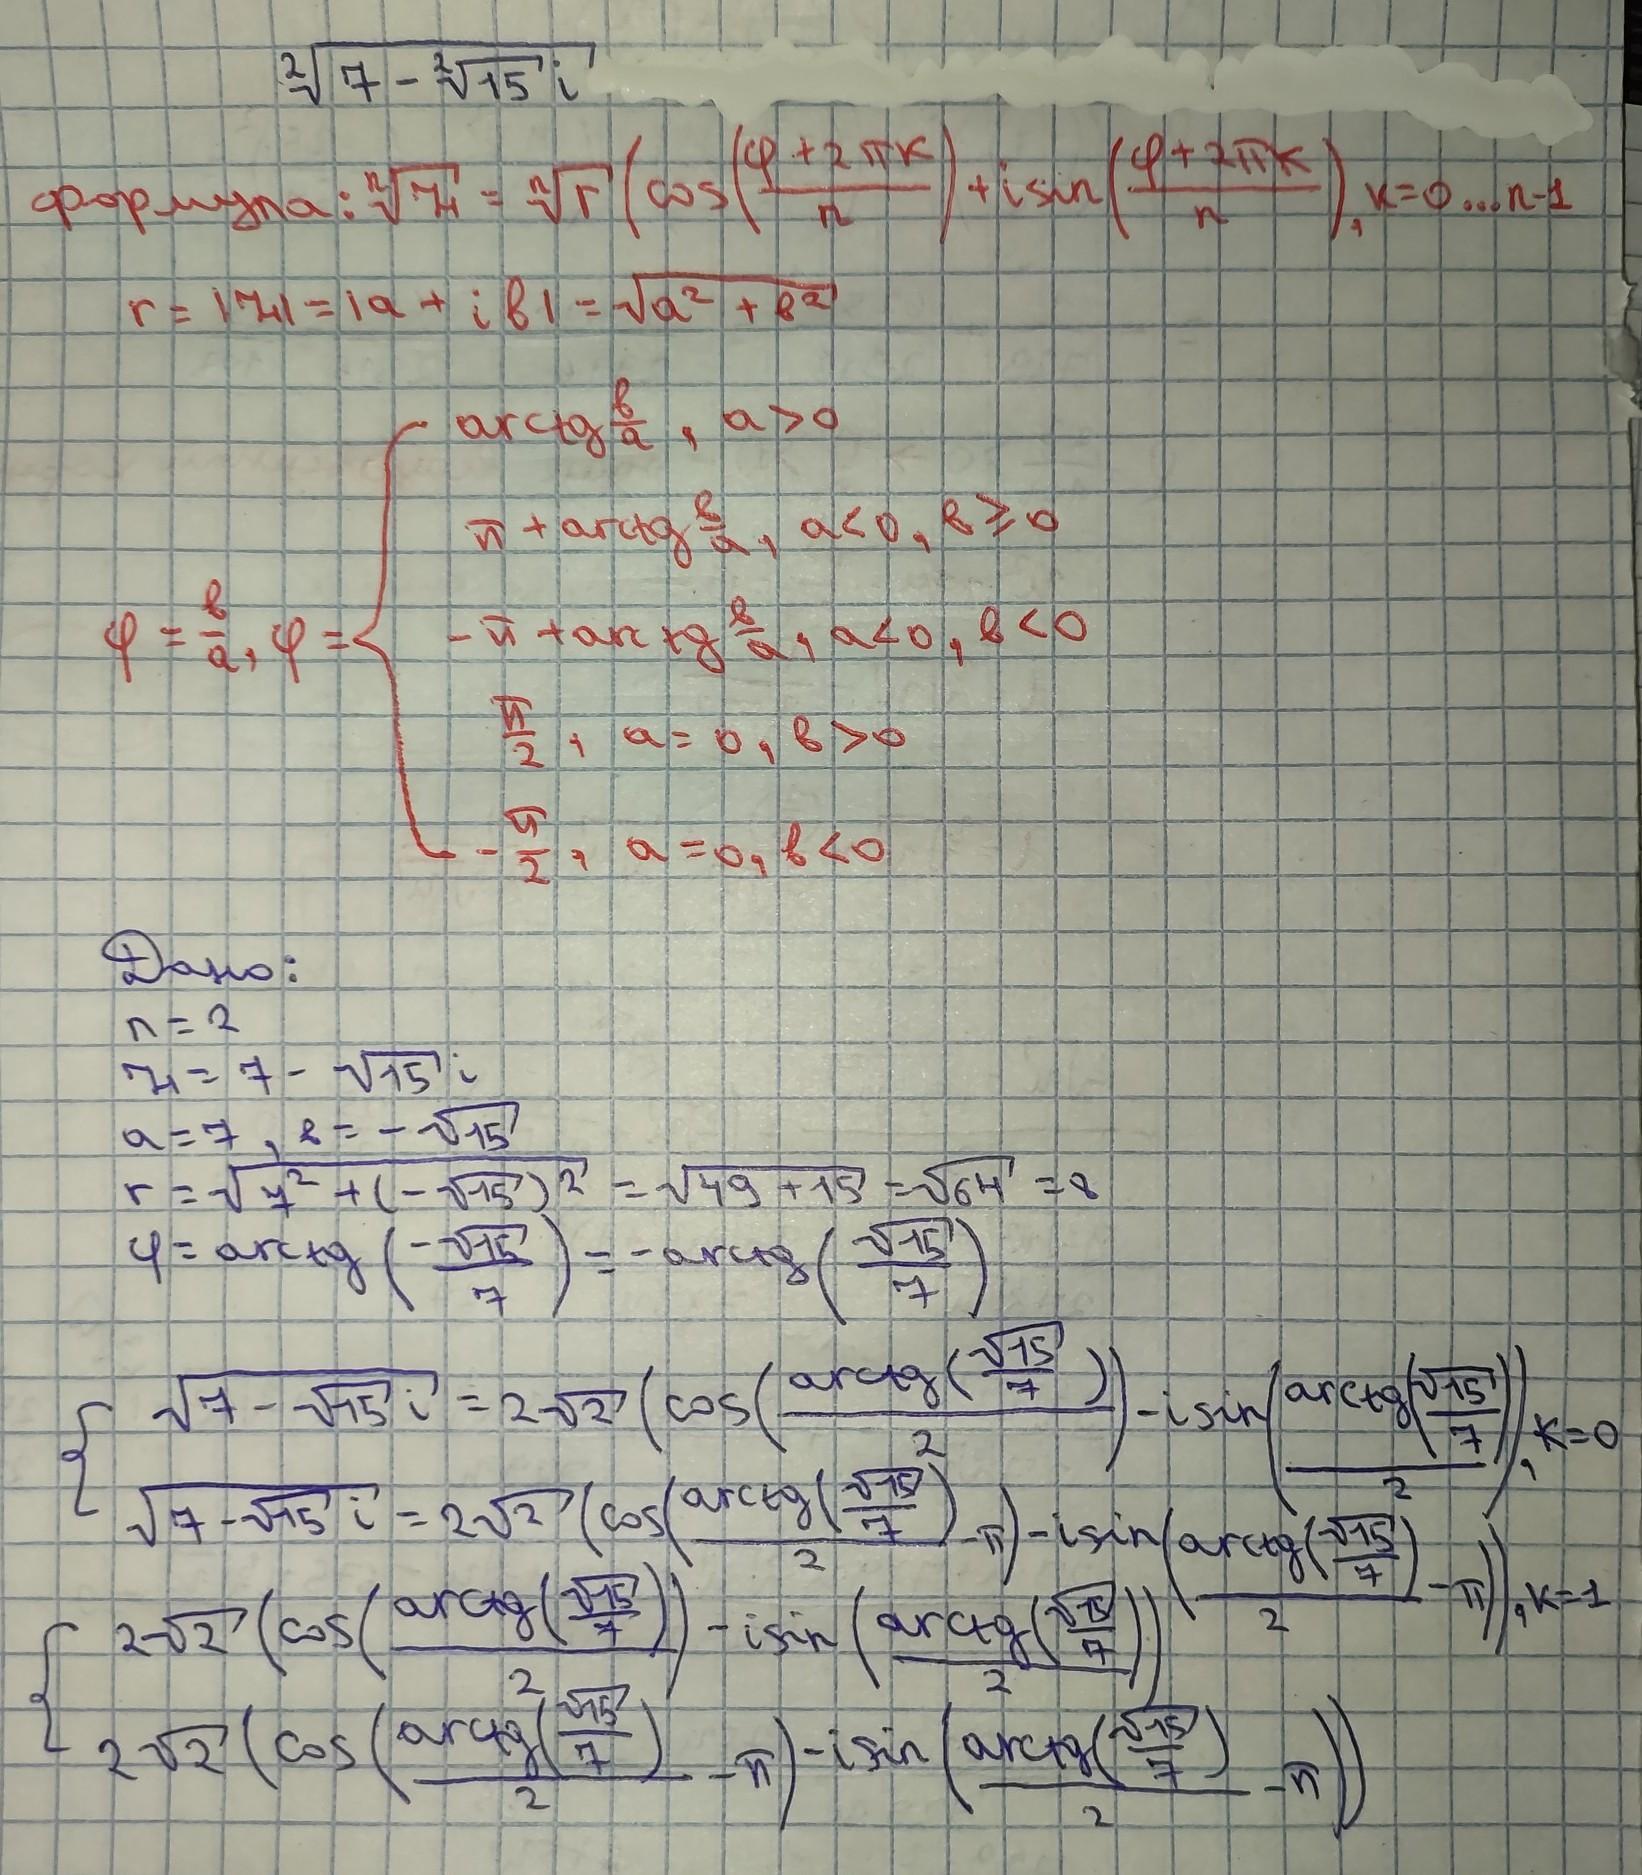 ²√(7 - ²√15 i)
формула: ⁿ√z₁ = ⁿ√r (cos((φ + 2πk)/n) + i sin((φ + 2πk)/n), k=0...n-1
r = |z₁| = |a + ib| = √(a² + b²)
arctg b/a, a > 0
π + arctg b/a, a < 0, b ≥ 0
φ = b/a, φ = { -π + arctg b/a, a < 0, b < 0
π/2, a = 0, b > 0
-π/2, a = 0, b < 0
Дано:
n = 2
z₁ = 7 - √15 i
a = 7, b = -√15
r = √(7² + (-√15)²) = √(49 + 15) = √64 = 8
φ = arctg(-√15/7) = -arctg(√15/7)
{ √(7 - √15 i) = 2√2 (cos(arctg(√15/7)/2) - i sin(arctg(√15/7)/2)), k=0
√(7 - √15 i) = 2√2 (cos(arctg(√15/7)/2 - π) - i sin(arctg(√15/7)/2 - π)), k=1
{ 2√2 (cos(arctg(√15/7)/2) - i sin(arctg(√15/7)/2))
2√2 (cos(arctg(√15/7)/2 - π) - i sin(arctg(√15/7)/2 - π))